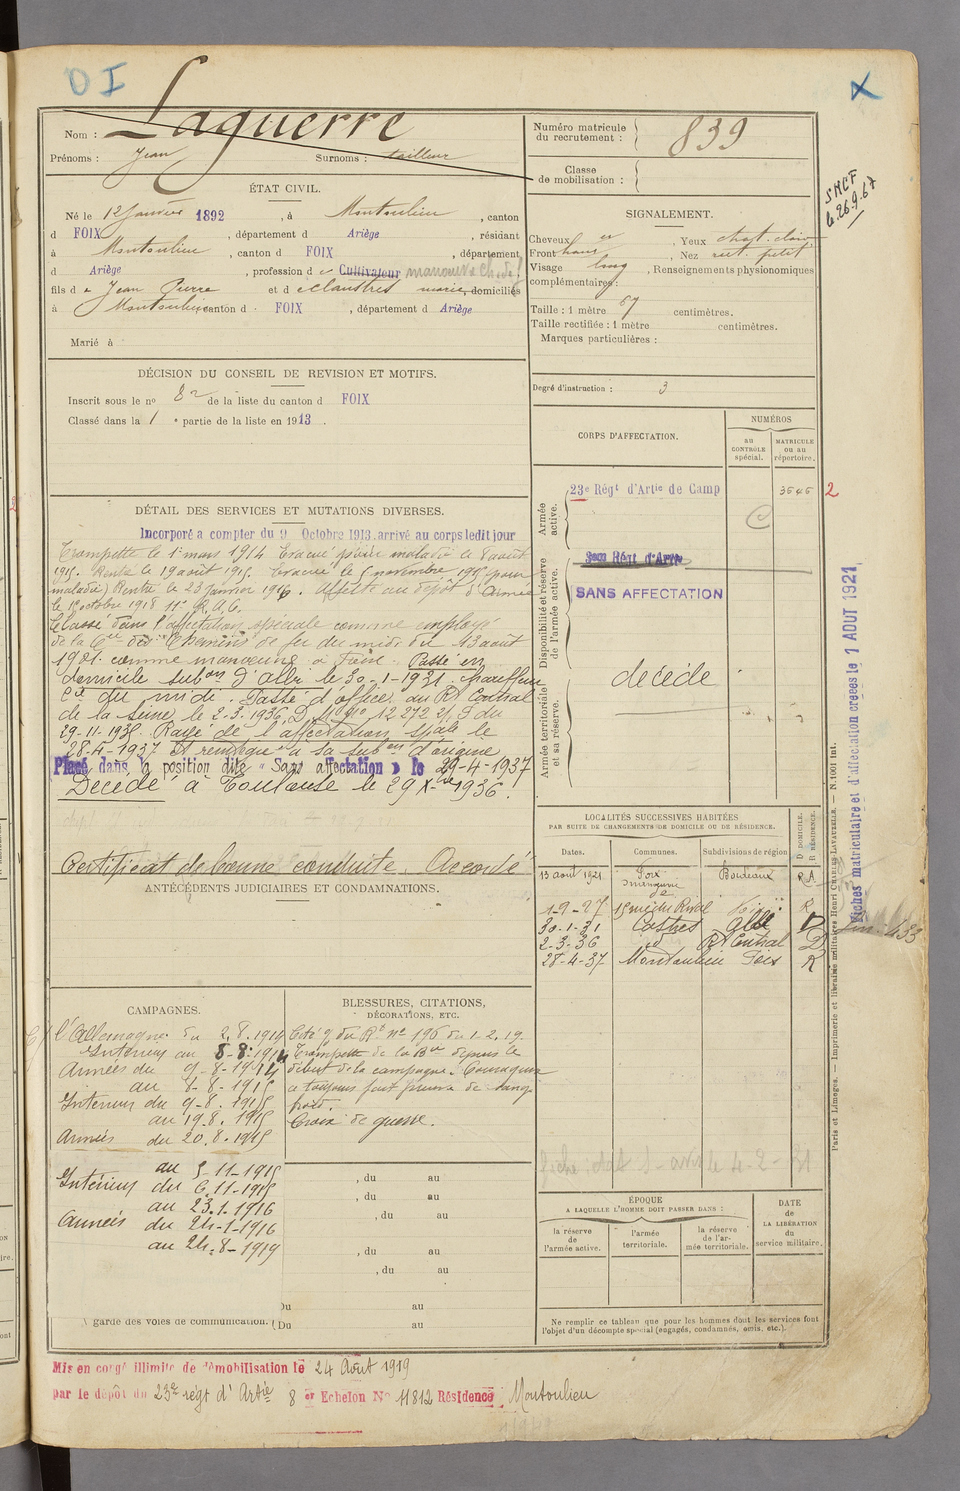 D I
X
Nom : Laguerre
Prénoms : Jean Surnoms : tailleur
Numéro matricule du recrutement : 839
Classe de mobilisation :
SMCF
le 26.9.67
ÉTAT CIVIL.
Né le 12 Janvier 1892, à Montoulieu, canton
d FOIX, département d Ariège, résidant
à Montoulieu, canton d FOIX, département
d Ariège, profession de Cultivateur manœuvre ch. de f
fils de Jean Pierre et de Claustres marie, domiciliés
à Montoulieu canton d FOIX, département d Ariège
Marié à
SIGNALEMENT.
Cheveux, Yeux chat. clair
Front haut, Nez rect. petit
Visage long, Renseignements physionomiques
complémentaires :
Taille : 1 mètre 67 centimètres.
Taille rectifiée : 1 mètre centimètres.
Marques particulières :
DÉCISION DU CONSEIL DE REVISION ET MOTIFS.
Inscrit sous le no 82 de la liste du canton d FOIX
Classé dans la 1e partie de la liste en 1913.
Degré d'instruction : 3
CORPS D'AFFECTATION.
NUMÉROS
au CONTRÔLE spécial.
MATRICULE ou au répertoire.
Armée active.
23e Régt d'Artie de Camp 3545 2
C
Disponibilité et réserve de l'armée active.
SANS AFFECTATION
Armée territoriale et sa réserve.
décédé
DÉTAIL DES SERVICES ET MUTATIONS DIVERSES.
Incorporé a compter du 9 Octobre 1913, arrivé au corps ledit jour
Trompette le 1er mars 1914 Evacué pour maladie le 8 août
1915. Rentré le 19 août 1915. Evacué le 5 novembre 1915 (pour
maladie) Rentré le 23 Janvier 1916. Affecté au dépôt d'Armée
le 1er octobre 1918 11e R.A.C.
Classé dans l'affectation spéciale comme employé
de la Cie des Chemins de fer du midi du 13 août
1921 comme manœuvre à Foix. Passé en
domicile subon d'Albi le 30-1-1931. chauffeur
Cie du midi. Passé d'office au Rt Central
de la Seine le 2.3.1936, D
29-11-1935. Rayé de l'affectation Spale le
28-4-1937 et remis à sa subon d'origine
Placé dans la position dite « Sans affectation » le 29-4-1937
Décédé à Toulouse le 29 Xbre 1936.
Certificat de bonne conduite. Accordé
ANTÉCÉDENTS JUDICIAIRES ET CONDAMNATIONS.
LOCALITÉS SUCCESSIVES HABITÉES
PAR SUITE DE CHANGEMENTS DE DOMICILE OU DE RÉSIDENCE.
Dates. Communes. Subdivisions de région. D DOMICILE. R RÉSIDENCE.
13 août 1921 Foix Bordeaux R.A
1-9-27 15 Foix R
30-1-31 Castres Albi D
2-3-36 Rt Central D
28-4-37 Montoulieu Foix R
Fiches matriculaire et d'affectation créées le 1 AOUT 1921
Paris et Limoges. — Imprimerie et librairie militaires Henri Charles-Lavauzelle. — N. 1001 int.
CAMPAGNES.
C/ l'Allemagne du 2.8.1914
Intérieur au 8-8-1914
Armées du 9-8-1914
au 8-8-1915
Intérieur du 9-8.1915
au 19.8.1915
Armées du 20.8.1915
au 5-11-1915
Intérieur du 6.11-1915
au 23.1.1916
Armées du 24-1-1916
au 24-8-1919
garde des voies de communication. (Du au
BLESSURES, CITATIONS, DÉCORATIONS, ETC.
Cité O/ du Rt no 196 du 1-2.19.
Trompette de la Bie depuis le
début de la campagne. Courageux
a toujours fait preuve de sang
froid.
Croix de guerre.
, du au
, du au
, du au
, du au
, du au
Du au
Fiche 4-2-31
ÉPOQUE
A LAQUELLE L'HOMME DOIT PASSER DANS :
la réserve de l'armée active.
l'armée territoriale.
la réserve de l'armée territoriale.
DATE de LA LIBÉRATION du service militaire.
Ne remplir ce tableau que pour les hommes dont les services font
l'objet d'un décompte spécial (engagés, condamnés, omis, etc.).
Mis en congé illimité de démobilisation le 24 Août 1919
par le dépôt du 23e régt d'Artie 8 er Echelon No 11812 Résidence Montoulieu